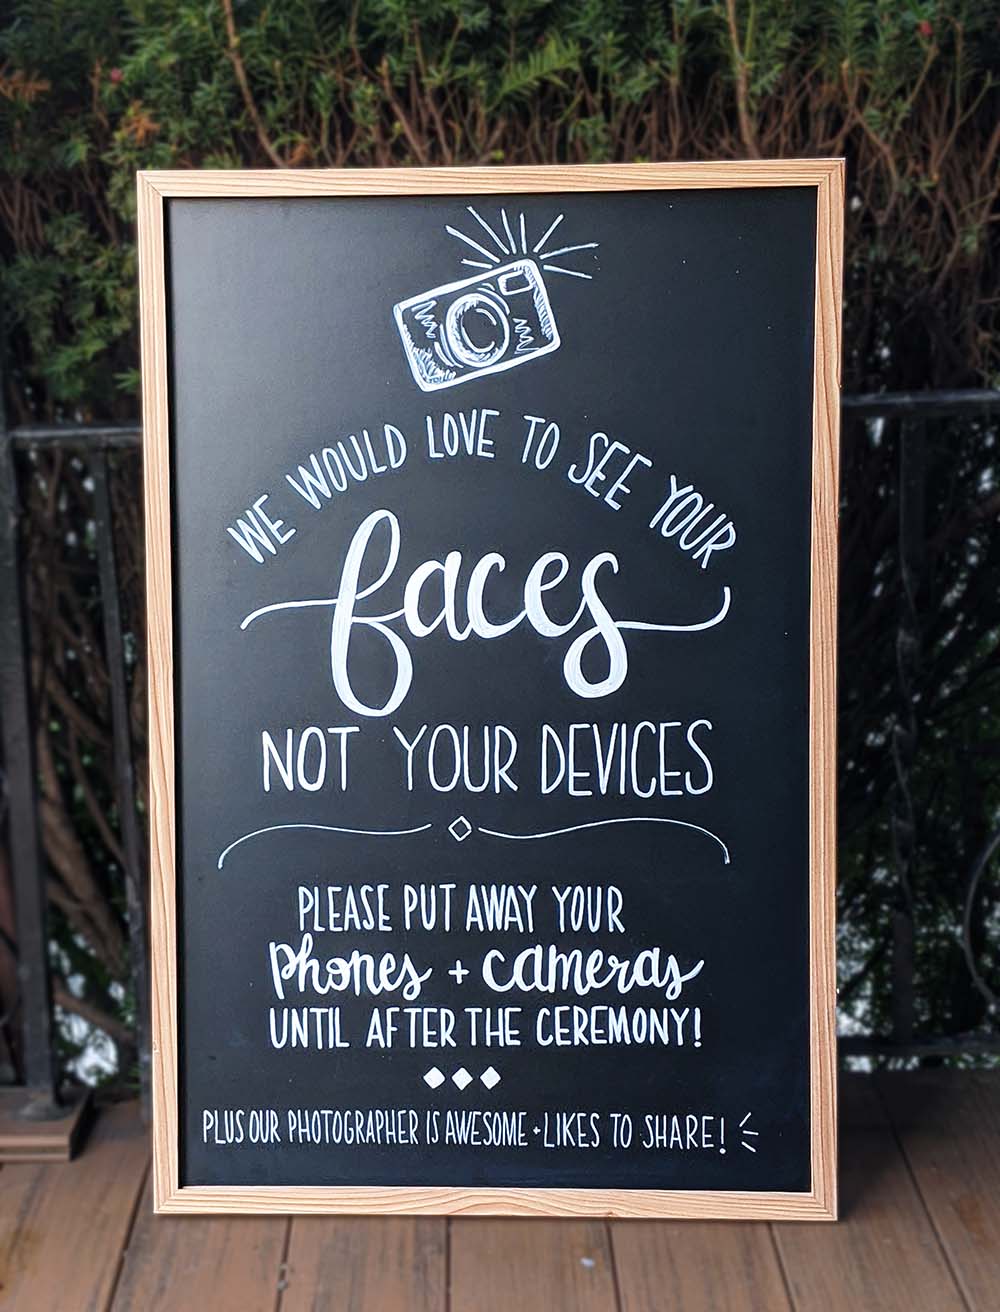 WE WOULD LOVE TO SEE YOUR
faces
NOT YOUR DEVICES
PLEASE PUT AWAY YOUR
phones + cameras
UNTIL AFTER THE CEREMONY!
PLUS OUR PHOTOGRAPHER IS AWESOME + LIKES TO SHARE!